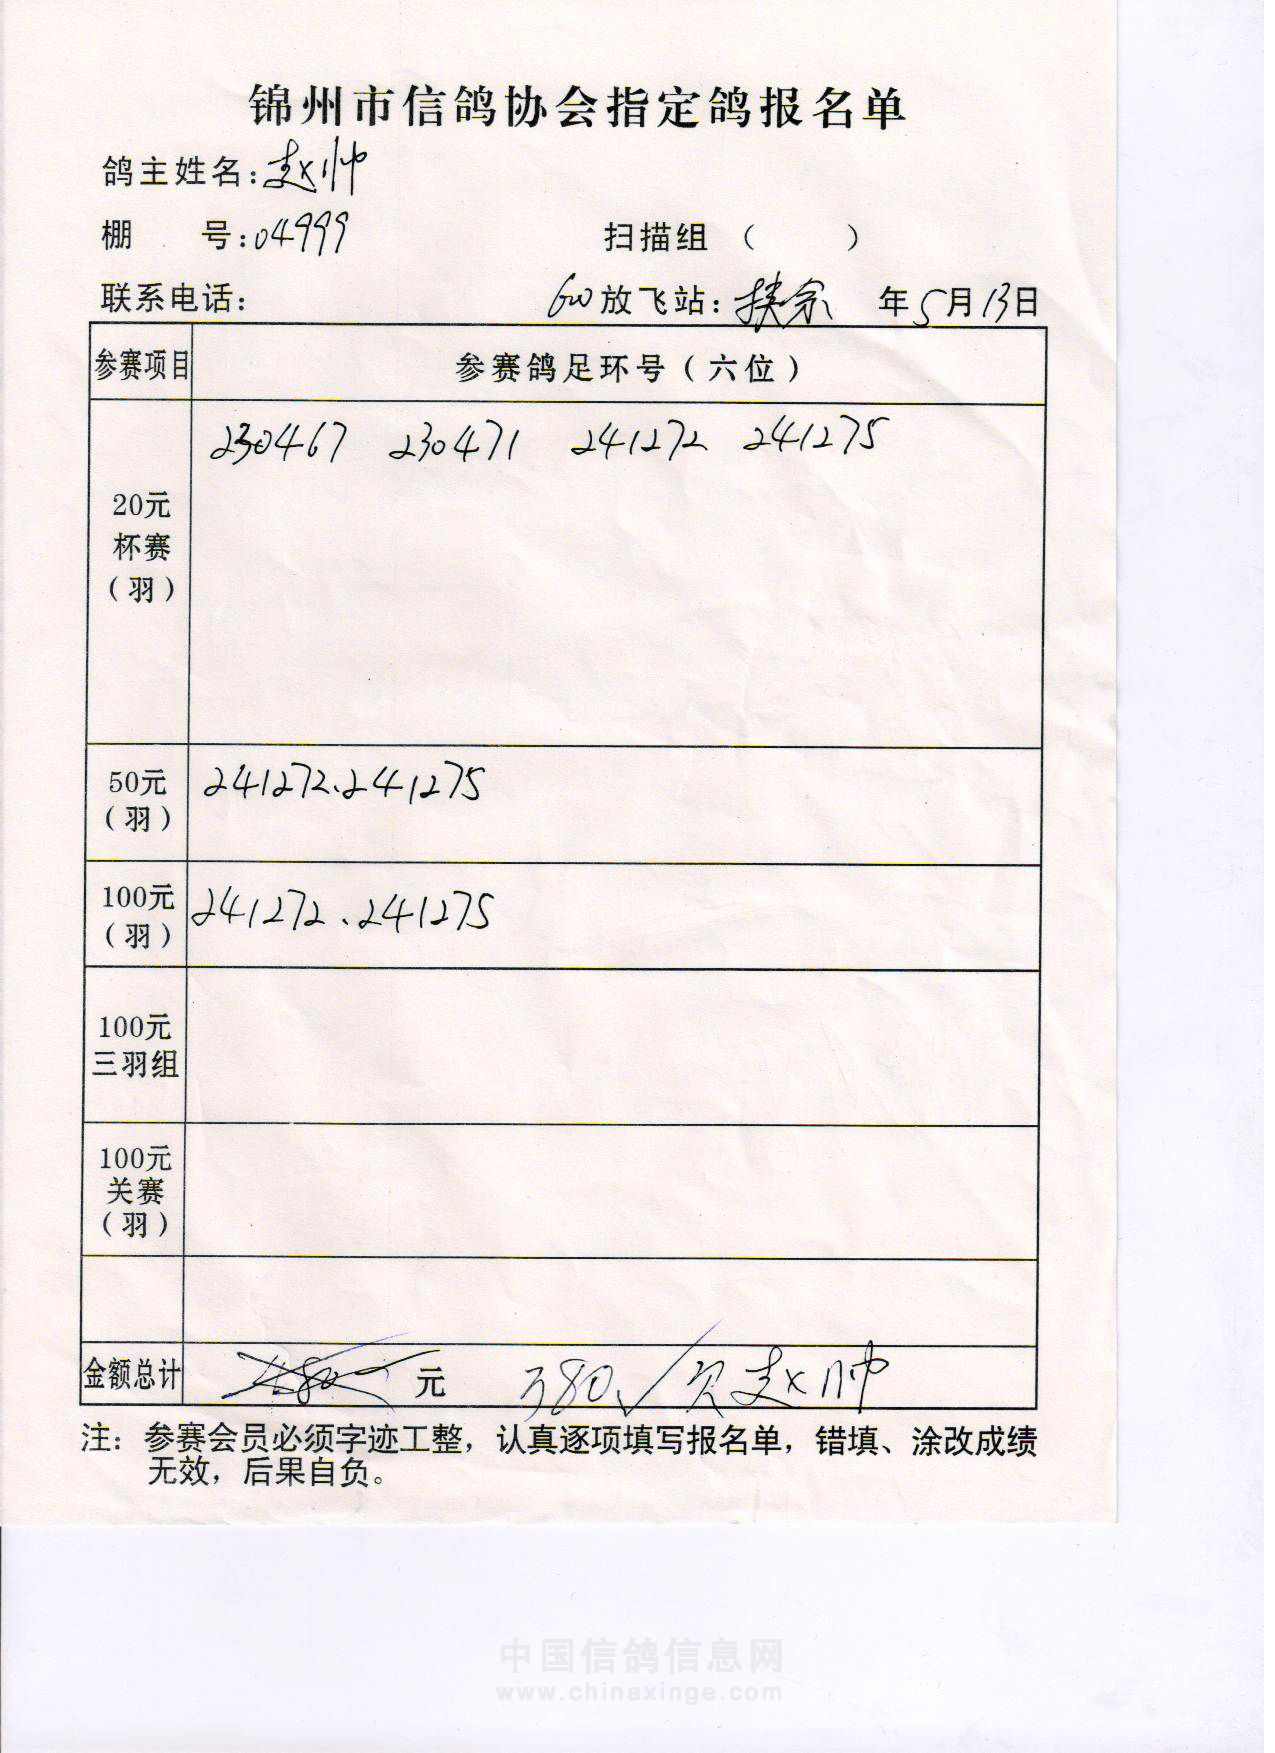 锦州市信鸽协会指定鸽报名单
鸽主姓名:赵帅
棚 号:04999 扫描组 ( )
联系电话: 600放飞站:扶余 年5月13日
参赛项目 参赛鸽足环号(六位)
230467 230471 241272 241275
20元
杯赛
(羽)
50元 241272、241275
(羽)
100元 241272、241275
(羽)
100元
三羽组
100元
关赛
(羽)
金额总计 480 元 380√ 欠赵帅
注:参赛会员必须字迹工整,认真逐项填写报名单,错填、涂改成绩
无效,后果自负。
中国信鸽信息网
www.chinaxinge.com